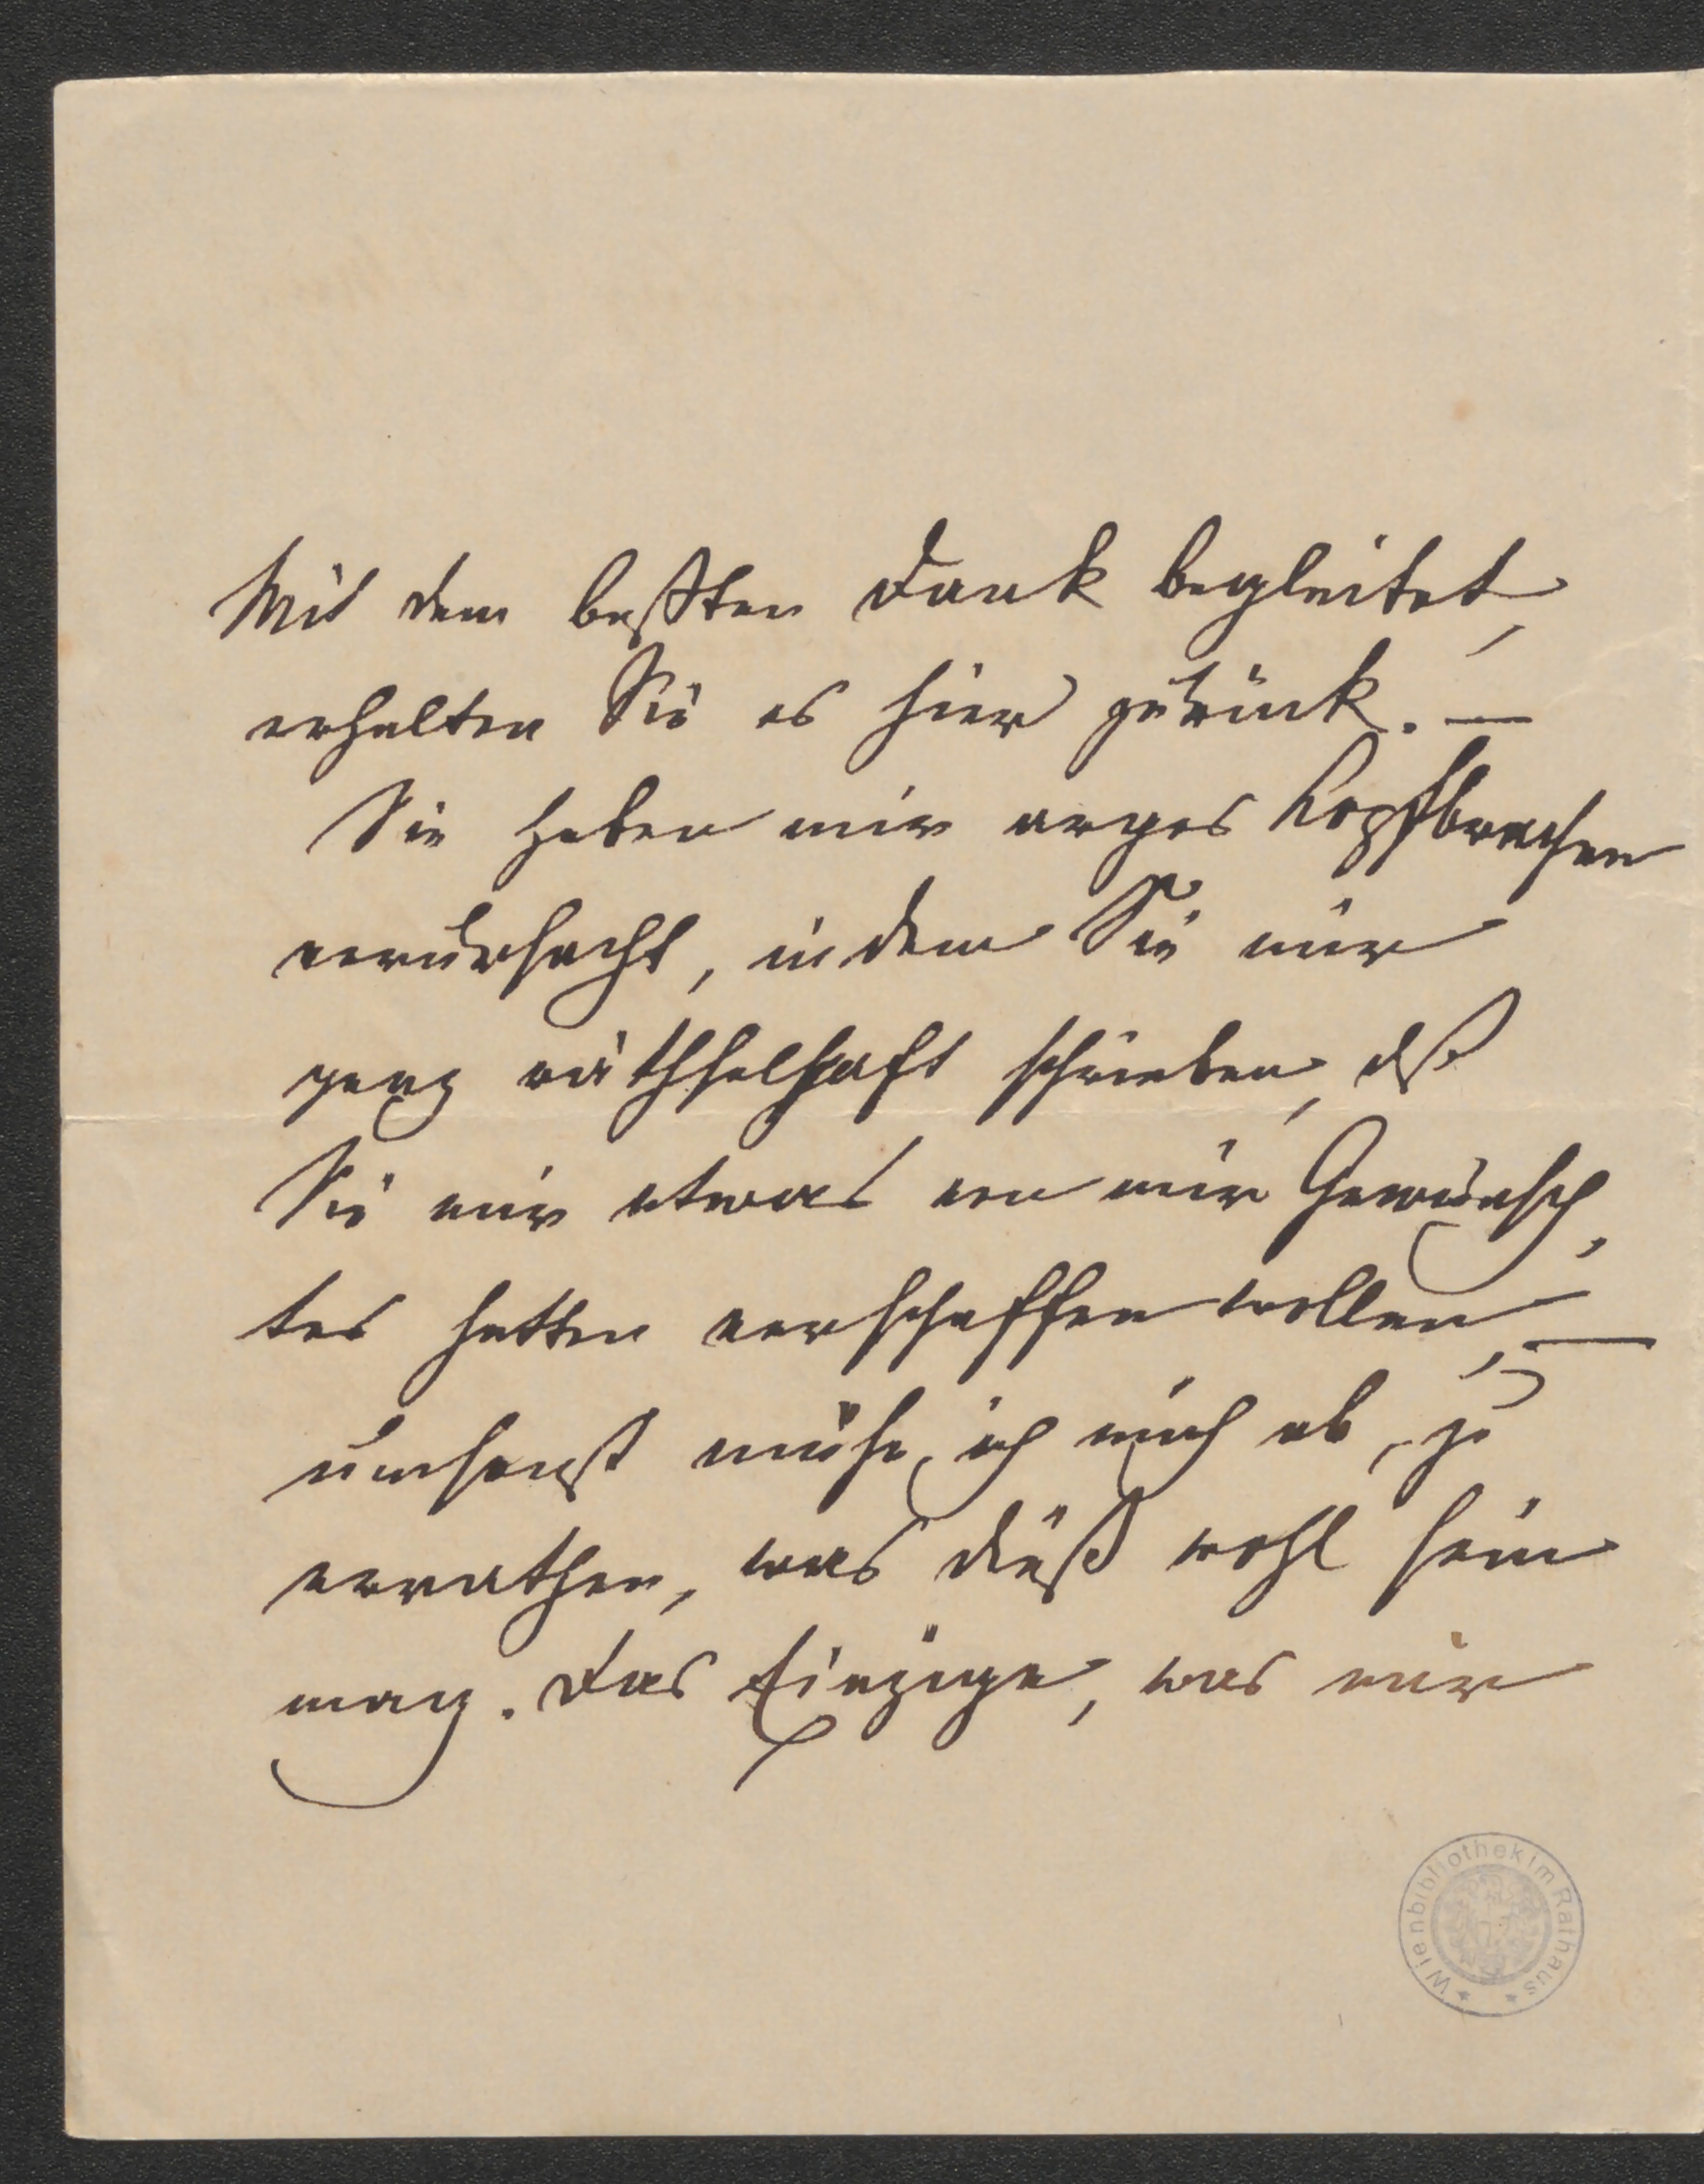 Mit dem beßten Dank begleitet,
erhalten Sie es hier zurück. —
Sie haben mir arges Kopfbrechen
verursacht, indem Sie mir
ganz räthselhaft schrieben, dß
Sie mir etwas von mir Gewünsch,
tes hatten verschaffen wollen, —
umsonst mühe ich mich ab, zu
errathen, was dieß wohl sein
mag. Das Einzige, was mir
Wienbibliothek im Rathaus